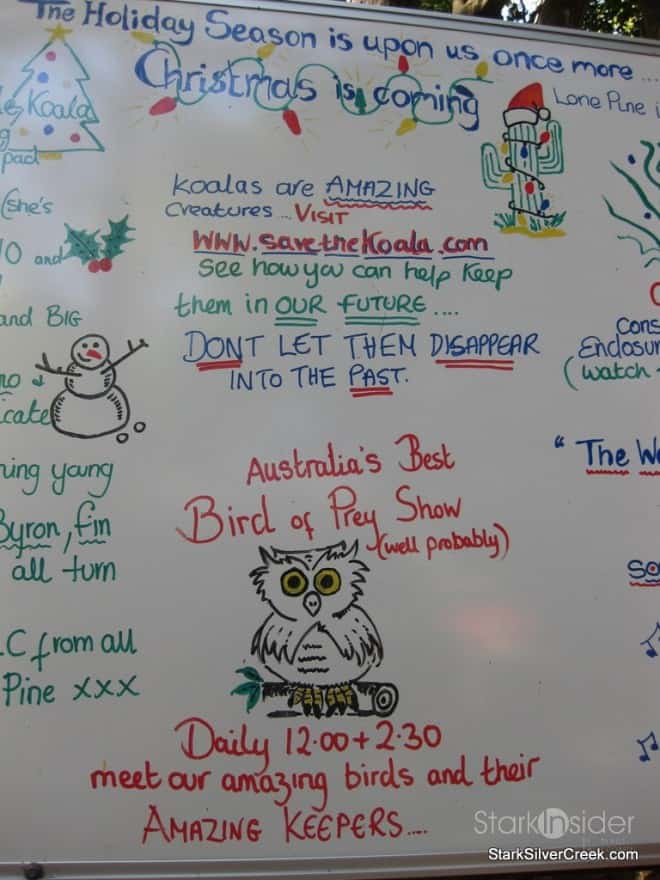 The Holiday Season is upon us once more ...
Christmas is coming
Koala
pad
(she's
and
and BIG
young
Byron, Fin
all turn
from all
Pine xxx
Koalas are AMAZING
Creatures ... VISIT
WWW.savetheKoala.com
see how you can help keep
them in OUR FUTURE ....
DONT LET THEM DISAPPEAR
INTO THE PAST.
Australia's Best
Bird of Prey Show
(well probably)
Daily 12.00 + 2.30
meet our amazing birds and their
AMAZING KEEPERS....
Lone Pine
(watch
" The
StarkInsider
StarkSilverCreek.com